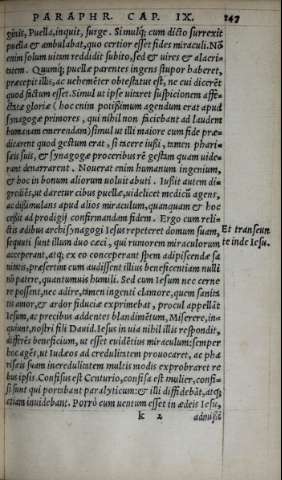 PARAPHR. CAP. IX. 247
ginis, Puella, inquit, surge. Simulq; cum dicto surrexit
puella & ambulabat, quo certior esset fides miraculi. Nõ
enim solum uitam reddidit subito, sed & uires & alacri=
tatem. Quumq; puellæ parentes ingens stupor haberet,
præcepit illis, ac uehemẽter obtestatus est, ne cui dicerẽt
quod factum esset. Simul ut ipse uitaret suspicionem affe=
ctatæ gloriæ (hoc enim potißimum agendum erat apud
synagogæ primores, qui nihil non faciebant ad laudem
humanam emerendam) simul ut illi maiore cum fide præ=
dicarent quod gestum erat, si tacere iußi, tamen phari=
sæis suis, & synagogæ proceribus rẽ gestam quam uide=
rant denarrarent. Nouerat enim humanum ingenium,
& hoc in bonum aliorum uoluit abuti. Iussit autem di=
gressus, ut daretur cibus puellæ, uidelicet medicũ agens,
ac dißimulans apud alios miraculum, quanquam & hoc
cessit ad prodigij confirmandam fidem. Ergo cum reli=
ctis ædibus archisynagogi Iesus repeteret domum suam,
sequuti sunt illum duo cæci, qui rumorem miraculorum
acceperant, atq; ex eo conceperant spem adipiscendæ sa
nitatis, præsertim cum audissent illius beneficentiam nulli
nõ patere, quantumuis humili. Sed cum Iesum nec cerne
re possent, nec adire, tamen ingenti clamore, quem sanita
tis amor, & ardor fiduciæ exprimebat, procul appellãt
Iesum, ac precibus addentes blandimẽtum, Miserere, in=
quiunt, nostri fili Dauid. Iesus in uia nihil illis respondit,
differẽs beneficium, ut esset euidẽtius miraculum: semper
hoc agẽs, ut Iudæos ad credulitatem prouocaret, ac pha
risæis suam incredulitatem multis modis exprobraret re
bus ipsis. Confisus est Centurio, confisa est mulier, confi=
si sunt qui portabant paralyticum: & illi diffidebãt, atq;
etiam inuidebant. Porrò cum uentum esset in ædeis Iesu,
k 2
Et transeun
te inde Iesu.